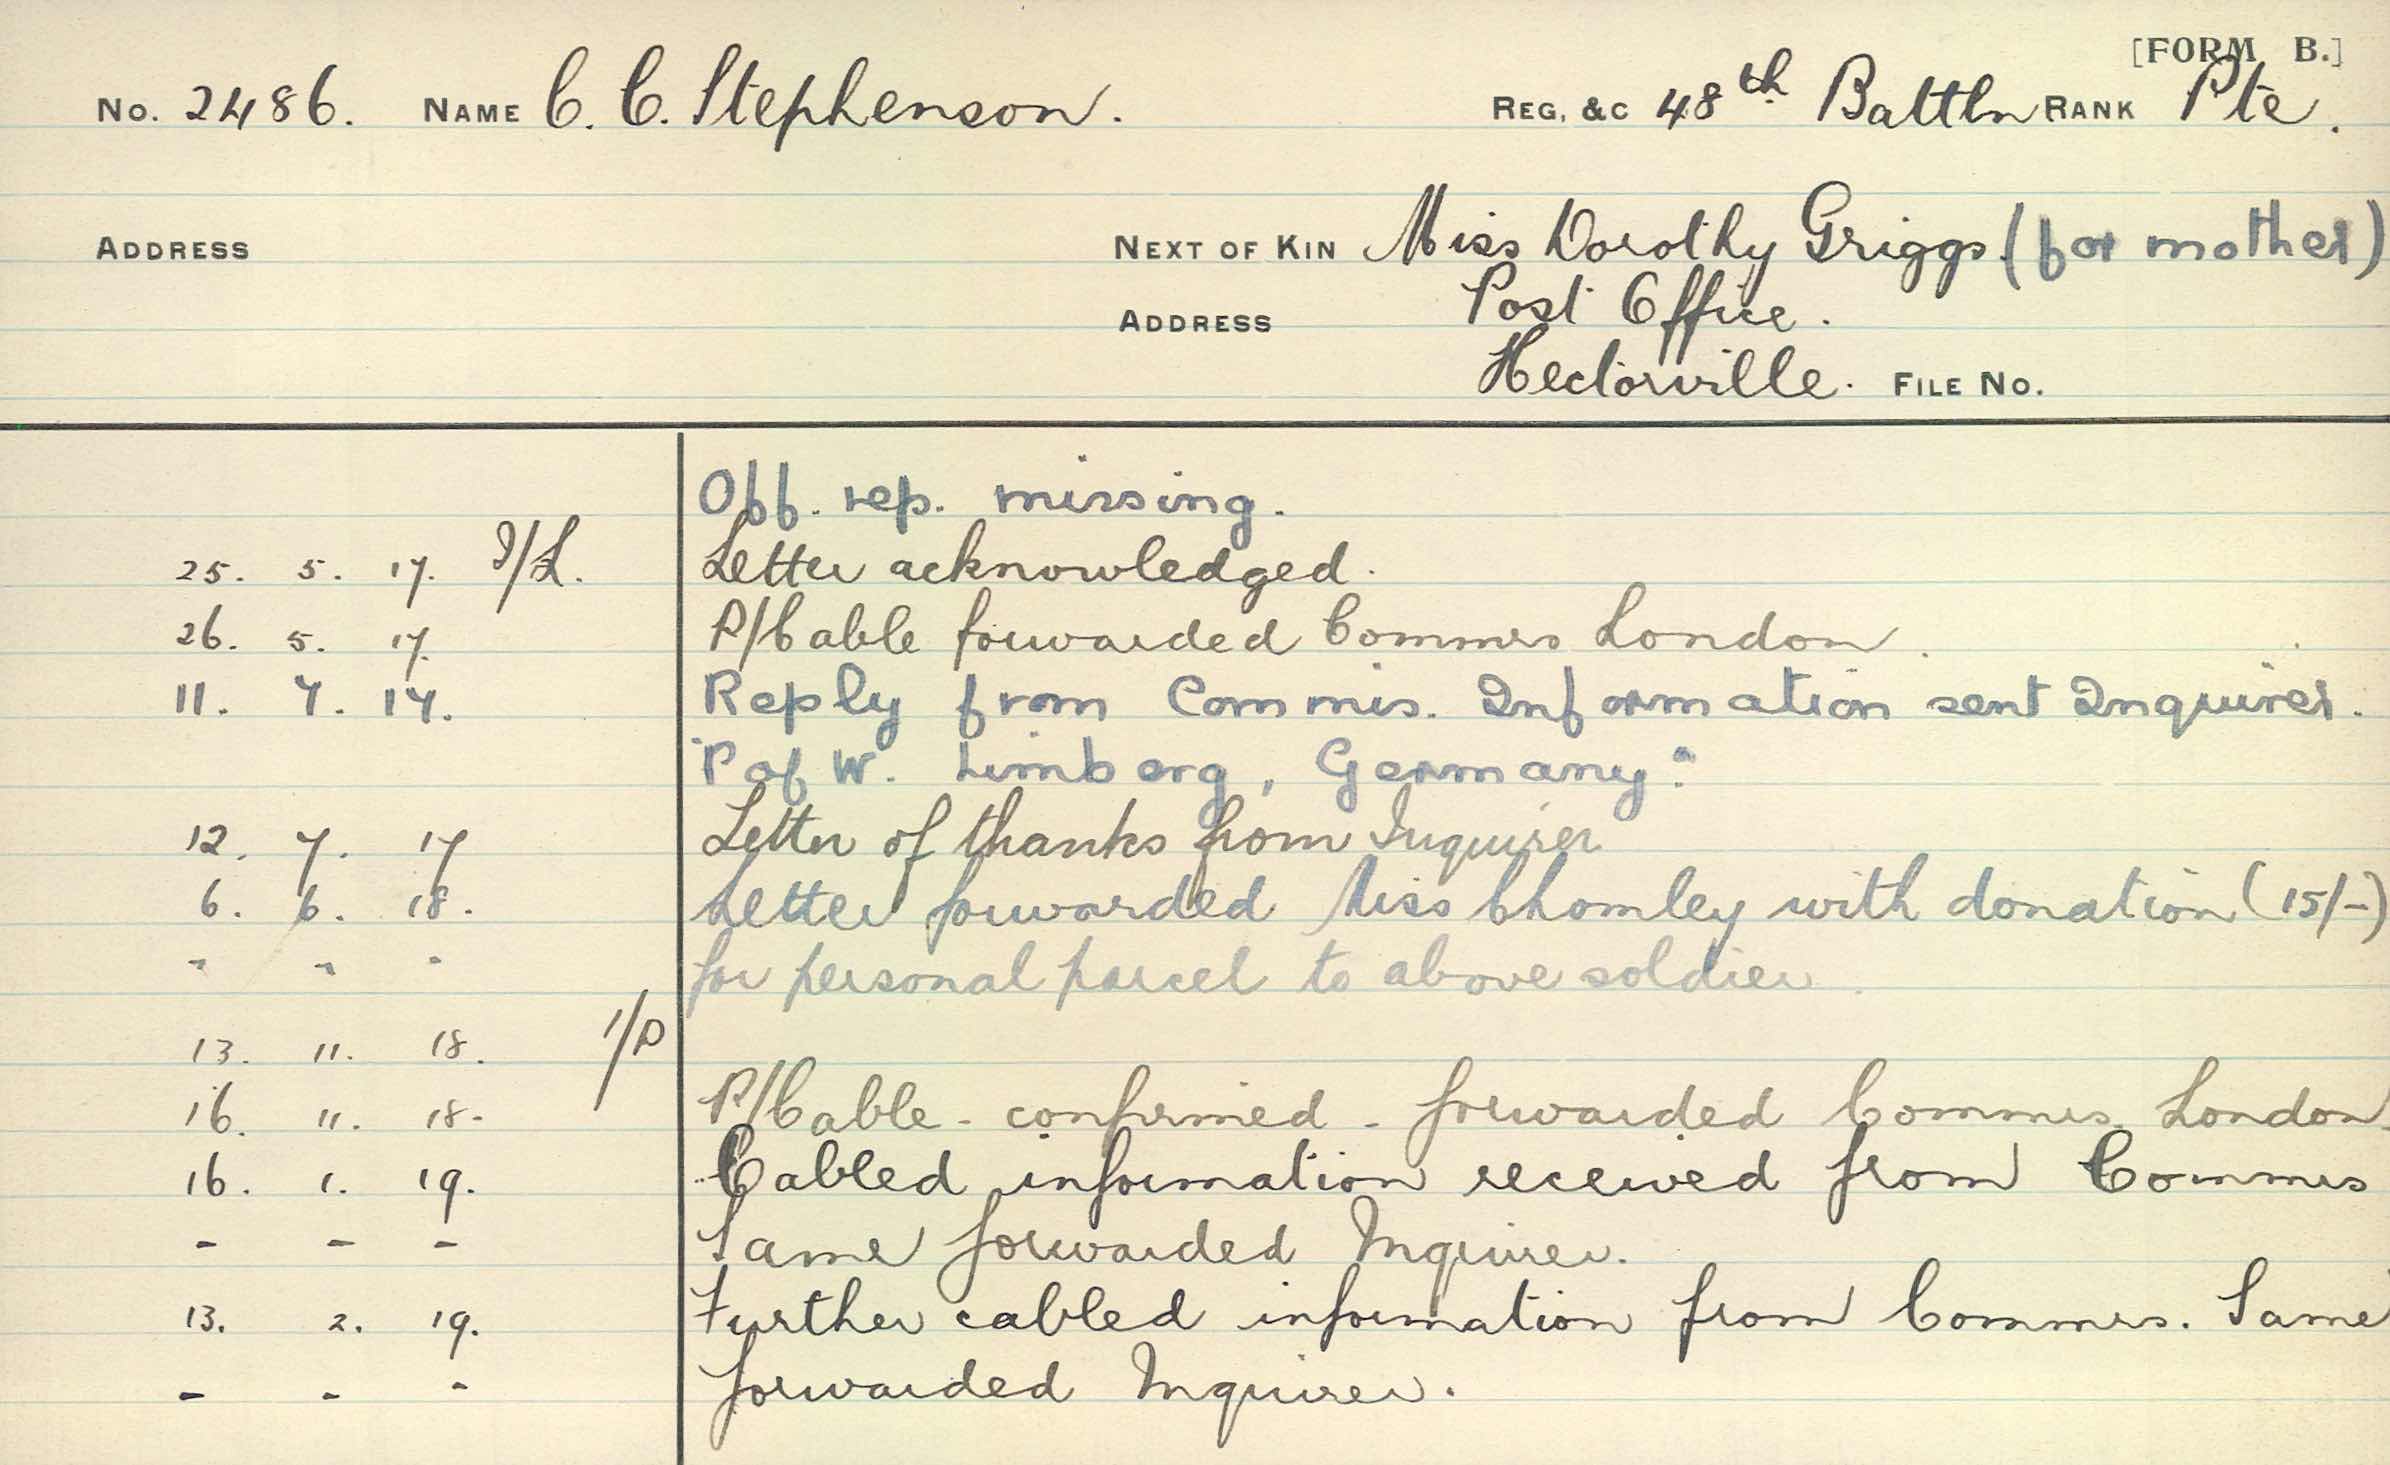 [FORM B.]
No. 2486. NAME C. C. Stephenson. REG. &C 48th Battln RANK Pte.
ADDRESS NEXT OF KIN Miss Dorothy Griggs (for mother)
ADDRESS Post Office.
Hectorville. FILE No.
Off. rep. missing.
25. 5. 17. I/L. Letter acknowledged.
26. 5. 17. P/Cable forwarded Commrs London.
11. 7. 17. Reply from Commis. Information sent Inquirer.
"P of W. Limberg, Germany."
12. 7. 17 Letter of thanks from Inquirer
6. 6. 18. Letter forwarded Miss Chomley with donation (15/-)
" " " for personal parcel to above soldier.
13. 11. 18. I/P
16. 11. 18. P/Cable - confirmed - forwarded Commrs. London.
16. 1. 19. Cabled information received from Commrs
- - - Same forwarded Inquirer.
13. 2. 19. Further cabled information from Commrs. Same
- - - forwarded Inquirer.